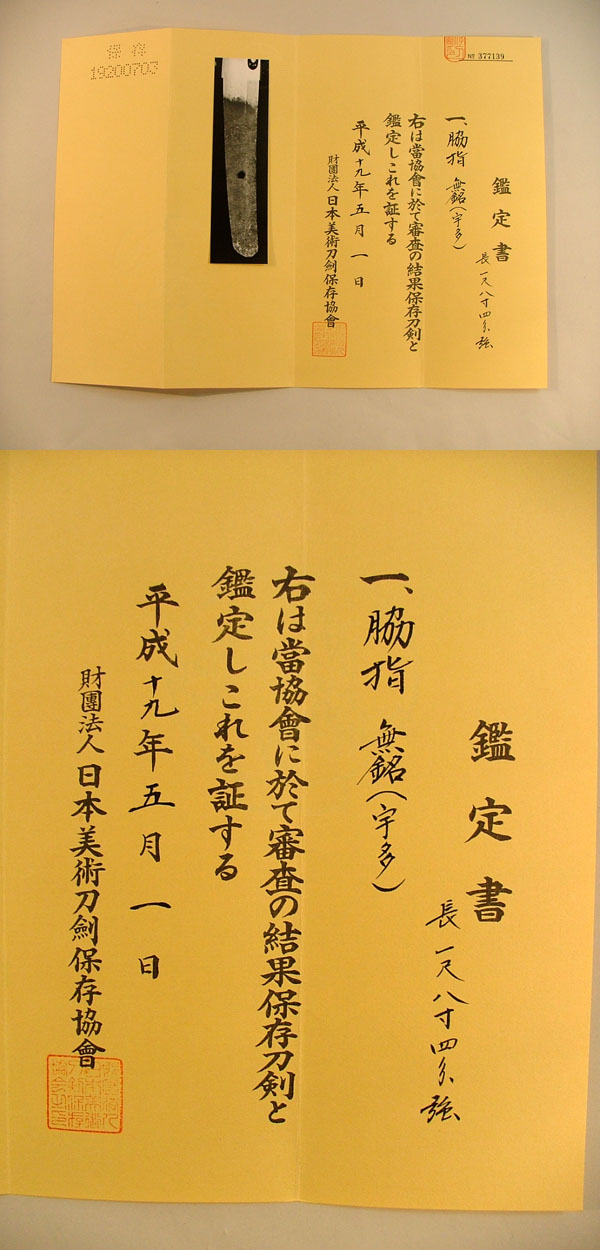 保存
19200703
№ 377139
鑑定書
一、脇指 無銘(宇多)
長一尺八寸四分強
右は當協會に於て審査の結果保存刀剣と
鑑定しこれを証する
平成十九年五月一日
財團法人日本美術刀劍保存協會
鑑定書
一、脇指 無銘(宇多)
長一尺八寸四分強
右は當協會に於て審査の結果保存刀剣と
鑑定しこれを証する
平成十九年五月一日
財團法人日本美術刀劍保存協會